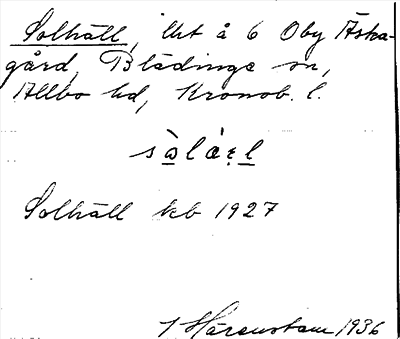 Solhäll, lht å 6 Oby Äska-
gård, Blädinge sn,
Allbo hd, Kronob. l.
sὼlά̀ɛl
Solhäll kb 1927
Härenstam 1936